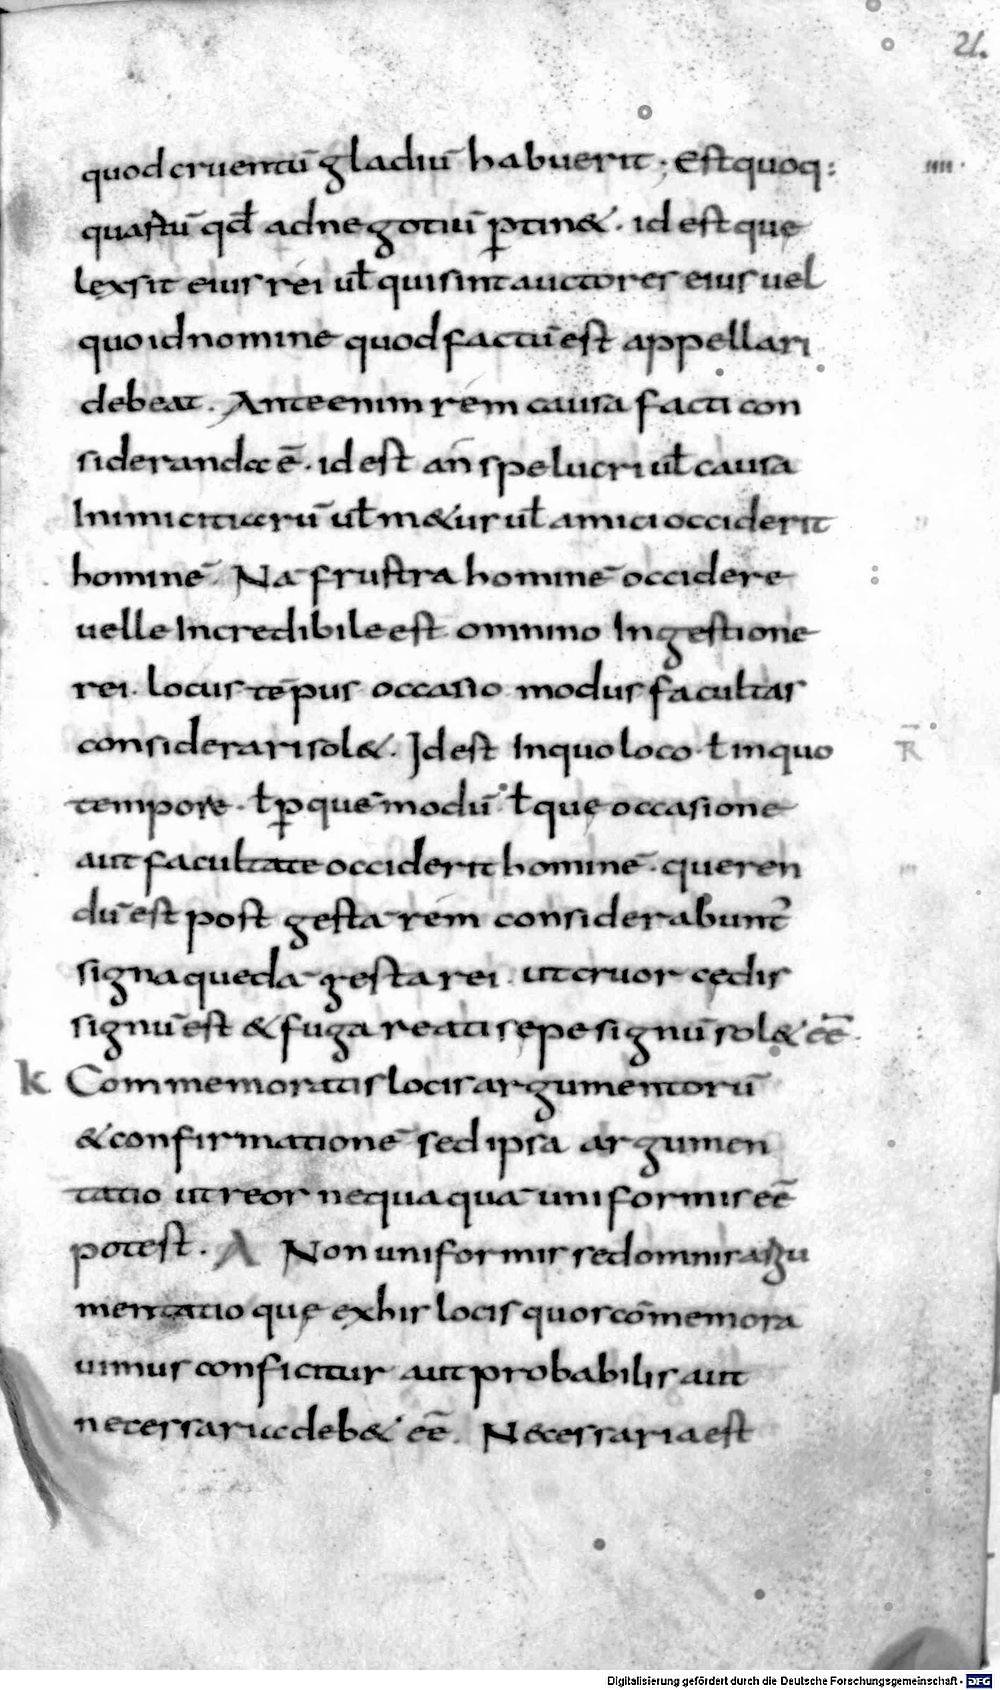 21.
quod cruentū gladiū habuerit; Est quoq:
quastū qd̄ ad negotiū ꝑtin&. id est que
lex sit eius rei ul̄ qui sint auctores eius uel
quo id nomine quod factū est appellari
debeat. Ante enim rem causa facti con
sideranda ē. id est an spe lucri ul̄ causa
Inimicitiarū ul̄ m&us ul̄ amici occiderit
hominē. Nā frustra hominē occidere
uelle Incredibile est. omnino In gestione
rei. locus tēpus occasio modus facultas
considerari sol&. Id est In quo loco. ł in quo
tempore. ł ꝑ quē modū ł que occasione
aut facultate occiderit hominē. queren
dū est post gestā rem considerabunt᷑
signa quedā gesta rei. ut cruor cędis
signū est & fuga reatis sepe signū sol& eē.
k Commemoratis locis argumentorū
& confirmationē sed ipsa argumen
tatio ut reor nequaquā uniformis eē
potest. A Non uniformis sed omnis argu
mentatio que ex his locis quos cōmemora
uimus conficitur aut probabilis aut
necessaria deb& eē. Necessaria est
Digitalisierung gefördert durch die Deutsche Forschungsgemeinschaft - DFG